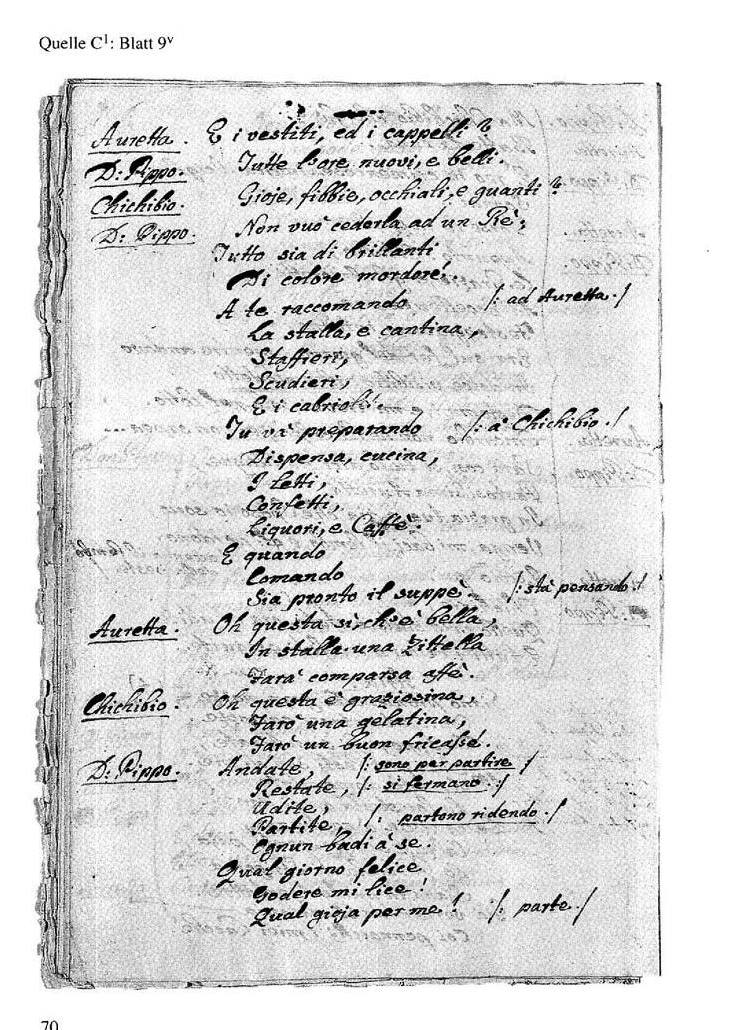 Quelle C1: Blatt 9v
Auretta. E i vestiti, ed i cappelli?
D: Pippo. Tutte l'ore nuovi, e belli.
Chichibio. Gioje, fibbie, occhiali, e guanti?
D: Pippo. Non vuò cederla ad un Rè;
Tutto sia di brillanti
Di colore mordorè.
A te raccomando /: ad Auretta. :/
La stalla, e cantina,
Staffieri,
Scudieri,
E i cabriolè.
Tu và preparando /: à Chichibio. :/
Dispensa, cucina,
I letti,
Confetti,
Liquori, e Caffè.
E quando
Comando
Sia pronto il suppè. /: stà pensando :/
Auretta. Oh questa sì, ch'è bella,
In stalla una Zittella
Farà comparsa affè.
Chichibio. Oh questa è graziosina,
Farò una gelatina,
Farò un buon fricassè.
D: Pippo. Andate, /: sono per partire :/
Restate, /: si fermano :/
Udite,
Partite, /: partono ridendo :/
Ognun badi à se.
Qual giorno felice
Godere mi lice!
Qual gioja per me! /: parte :/
70